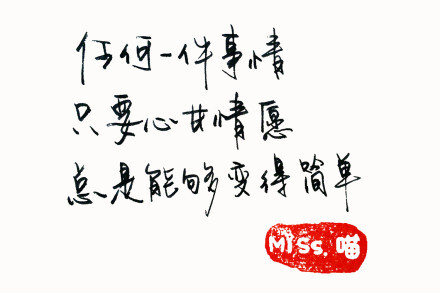 任何一件事情
只要心甘情愿
总是能够变得简单
Miss.喵